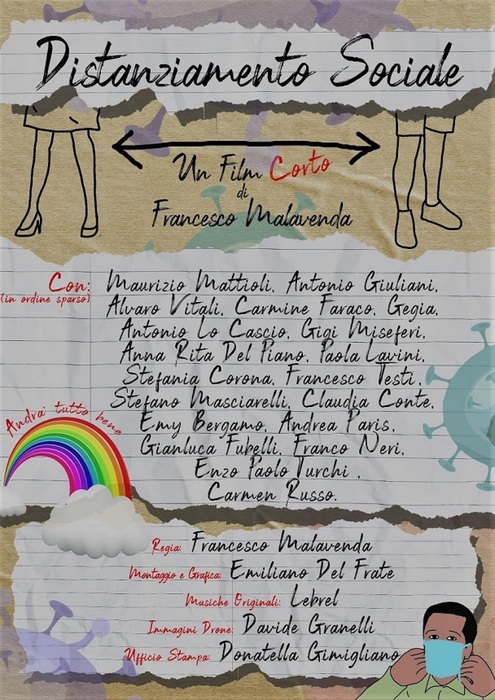 Distanziamento Sociale
Un Film Corto
di
Francesco Malavenda
Con: Maurizio Mattioli, Antonio Giuliani,
(in ordine sparso)
Alvaro Vitali, Carmine Faraco, Gegia,
Antonio Lo Cascio, Gigi Miseferi,
Anna Rita Del Piano, Paola Lavini,
Stefania Corona, Francesco Testi,
Stefano Masciarelli, Claudia Conte,
Emy Bergamo, Andrea Paris,
Gianluca Fubelli, Franco Neri,
Enzo Paolo Turchi ,
Carmen Russo.
Andra' tutto bene
Regia: Francesco Malavenda
Montaggio e Grafica: Emiliano Del Frate
Musiche Originali: Lebrel
Immagini Drone: Davide Granelli
Ufficio Stampa: Donatella Gimigliano